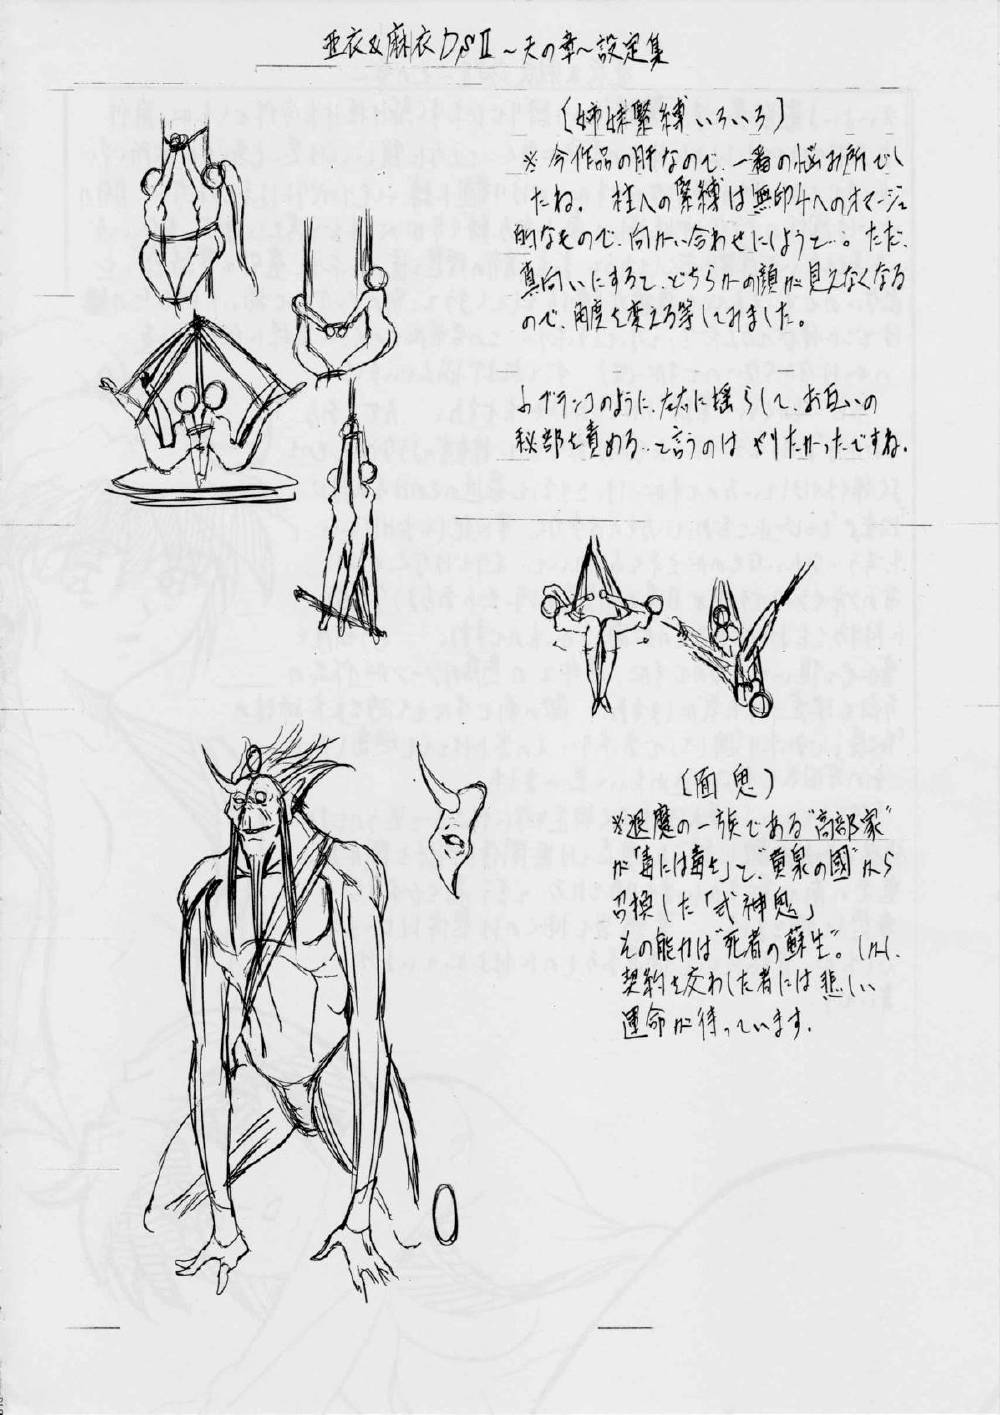 亜衣&麻衣DSⅡ～天の章～設定集
(姉妹緊縛いろいろ)
※今作品の肝なので、一番の悩み所でし
たね。 柱への緊縛は無印4へのオマージュ
的なもので、向かい合わせにしようと…。ただ、
真向いにすると、どちらかの顔が見えなくなる
ので、角度を変える等してみました。
ブランコのように、左右に揺らして、お互いの
秘部を責める…と言うのは やりたかったですね。
(面鬼)
※退魔の一族である"高部家"
が「毒には毒を」で、"黄泉の國"から
召換した「式神鬼」
その能力は"死者の蘇生"。しかし、
契約を交わした者には悲しい
運命が待っています.